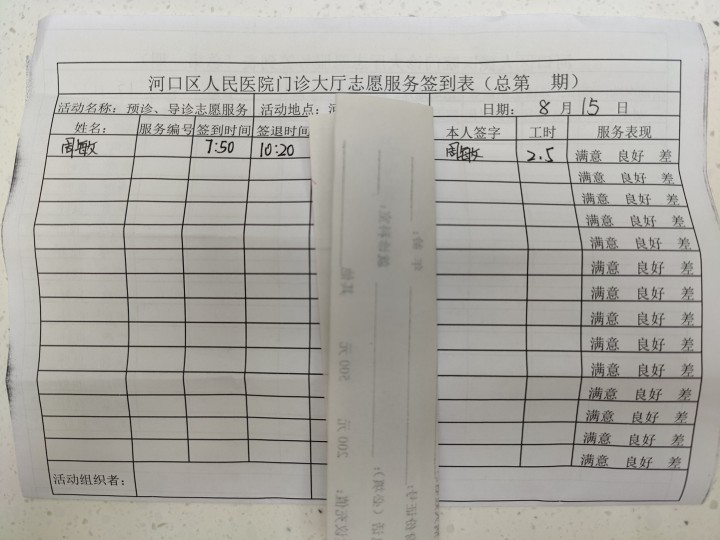 河口区人民医院门诊大厅志愿服务签到表（总第 期）
活动名称：预诊、导诊志愿服务 活动地点： 日期： 8 月 15 日
姓名： 服务编号 签到时间 签退时间 本人签字 工时 服务表现
周敏 7:50 10:20 周敏 2.5 满意 良好 差
满意 良好 差
满意 良好 差
满意 良好 差
满意 良好 差
满意 良好 差
满意 良好 差
满意 良好 差
满意 良好 差
满意 良好 差
满意 良好 差
满意 良好 差
满意 良好 差
满意 良好 差
活动组织者：